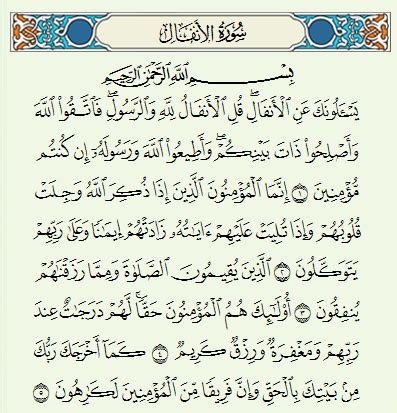 سُورَةُ الأَنفَالِ
بِسْمِ اللَّهِ الرَّحْمَٰنِ الرَّحِيمِ
يَسْـَٔلُونَكَ عَنِ الْأَنفَالِ ۖ قُلِ الْأَنفَالُ لِلَّهِ وَالرَّسُولِ ۖ فَاتَّقُوا اللَّهَ
وَأَصْلِحُوا ذَاتَ بَيْنِكُمْ ۖ وَأَطِيعُوا اللَّهَ وَرَسُولَهُۥٓ إِن كُنتُم
مُّؤْمِنِينَ ١ إِنَّمَا الْمُؤْمِنُونَ الَّذِينَ إِذَا ذُكِرَ اللَّهُ وَجِلَتْ
قُلُوبُهُمْ وَإِذَا تُلِيَتْ عَلَيْهِمْ ءَايَٰتُهُۥ زَادَتْهُمْ إِيمَٰنًا وَعَلَىٰ رَبِّهِمْ
يَتَوَكَّلُونَ ٢ الَّذِينَ يُقِيمُونَ الصَّلَوٰةَ وَمِمَّا رَزَقْنَٰهُمْ
يُنفِقُونَ ٣ أُولَٰٓئِكَ هُمُ الْمُؤْمِنُونَ حَقًّا ۚ لَّهُمْ دَرَجَٰتٌ عِندَ
رَبِّهِمْ وَمَغْفِرَةٌ وَرِزْقٌ كَرِيمٌ ٤ كَمَآ أَخْرَجَكَ رَبُّكَ
مِنۢ بَيْتِكَ بِالْحَقِّ وَإِنَّ فَرِيقًا مِّنَ الْمُؤْمِنِينَ لَكَٰرِهُونَ ٥